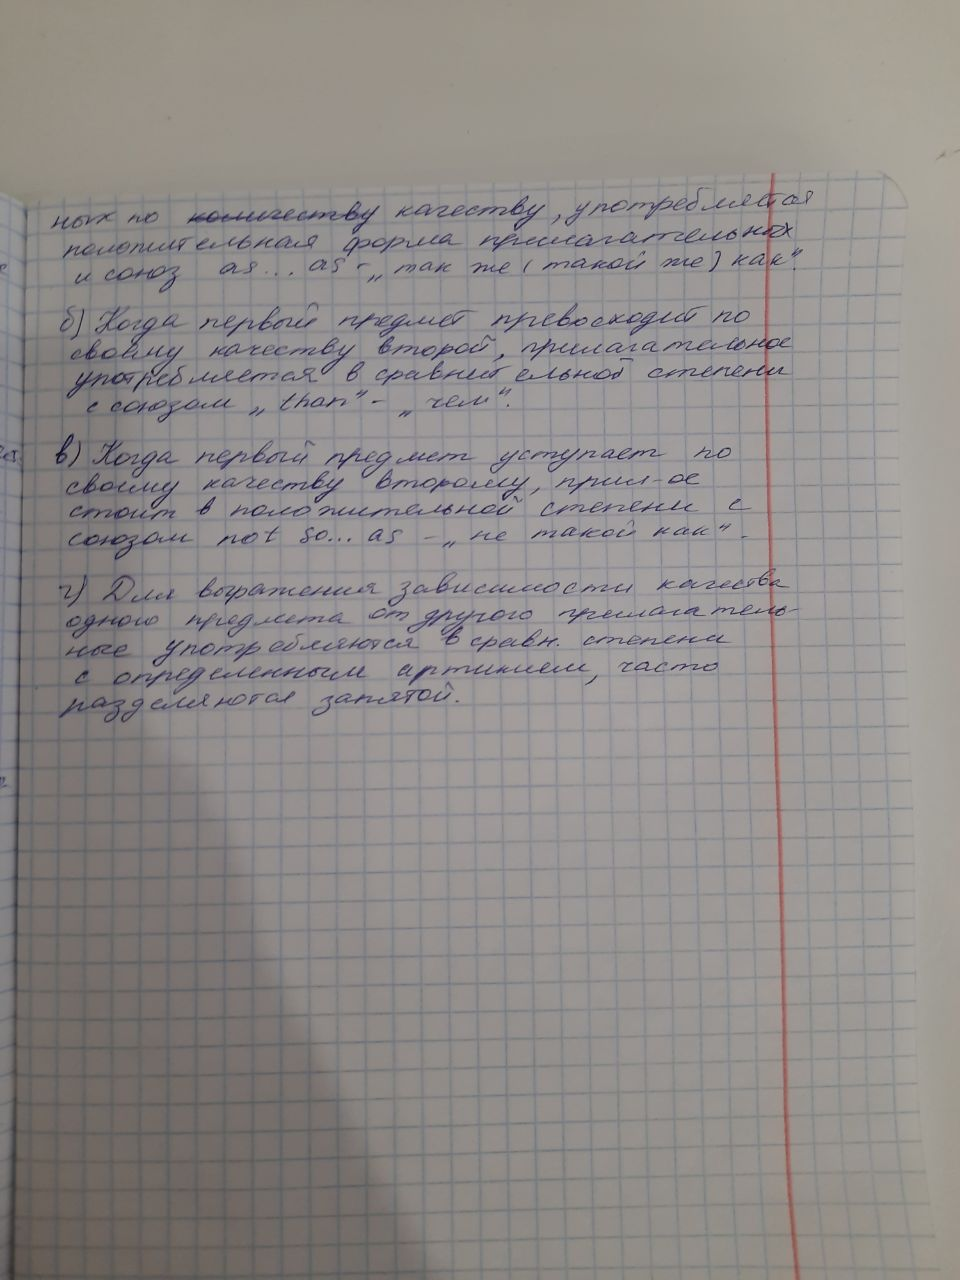 ных по количеству качеству, употребляется
положительная форма прилагательных
и союз as... as - „так же (такой же) как".
б) Когда первый предмет превосходит по
своему качеству второй, прилагательное
употребляется в сравнительной степени
с союзом „than" - „чем".
в) Когда первый предмет уступает по
своему качеству второму, прил-ое
стоит в положительной степени с
союзом not so... as - „не такой как".
г) Для выражения зависимости качества
одного предмета от другого прилагатель-
ные употребляются в сравн. степени
с определенным артиклем, часто
разделяются запятой.